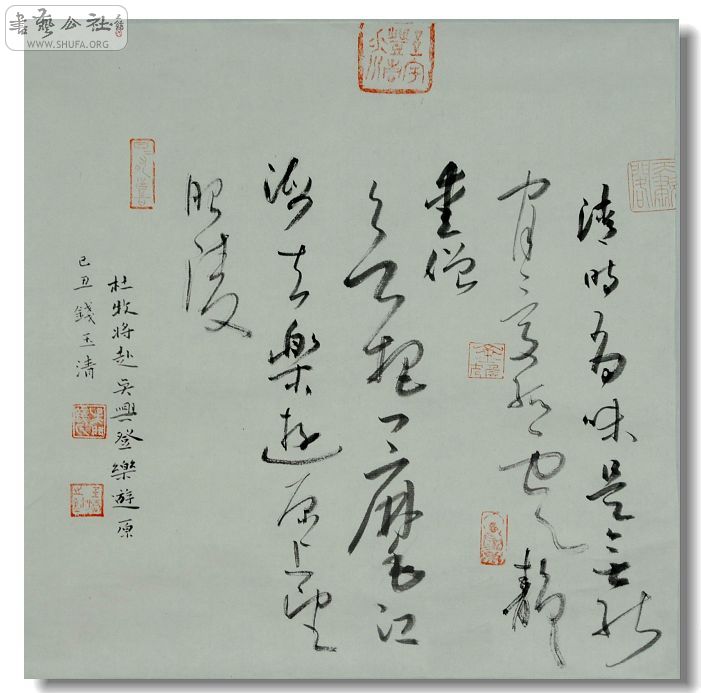 書藝公社
WWW.SHUFA.ORG
清時有味是無能
閒愛孤雲靜
愛僧
欲把一麾江
海去樂遊原上望
昭陵
杜牧將赴吳興登樂遊原
己丑錢玉清